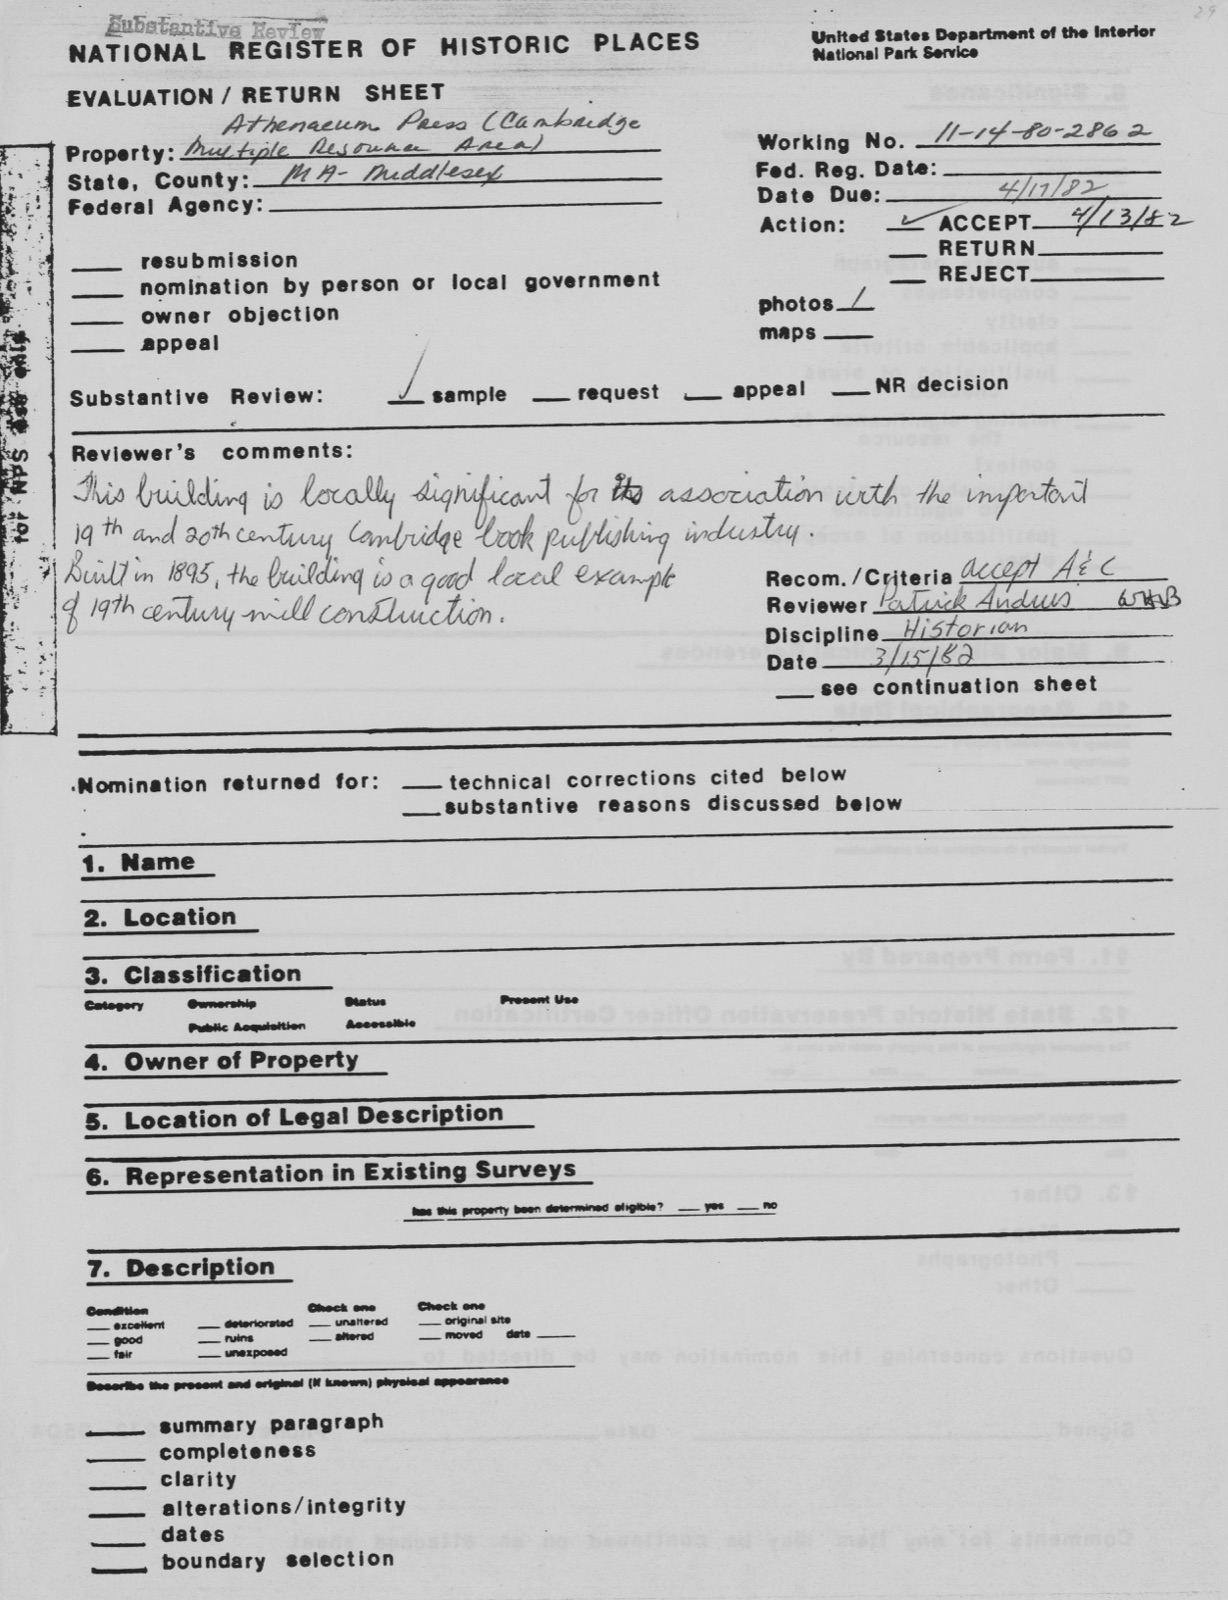 29
Substantive Review
NATIONAL REGISTER OF HISTORIC PLACES
United States Department of the Interior
National Park Service
EVALUATION / RETURN SHEET
Athenaeum Press (Cambridge
Property: Multiple Resource Area)
State, County: MA- Middlesex
Federal Agency:
Working No. 11-14-80-2862
Fed. Reg. Date:
Date Due: 4/17/82
Action: ✓ ACCEPT 4/13/82
RETURN
REJECT
resubmission
nomination by person or local government
owner objection
appeal
photos /
maps
for NPS use only
Substantive Review: ✓ sample request appeal NR decision
Reviewer's comments:
This building is locally significant for its association with the important
19th and 20th century Cambridge book publishing industry.
Built in 1895, the building is a good local example
of 19th century mill construction.
Recom./Criteria accept A & C
Reviewer Patrick Andrus WHB
Discipline Historian
Date 3/15/82
see continuation sheet
Nomination returned for: technical corrections cited below
substantive reasons discussed below
1. Name
2. Location
3. Classification
Category Ownership Status Present Use
Public Acquisition Accessible
4. Owner of Property
5. Location of Legal Description
6. Representation in Existing Surveys
has this property been determined eligible? yes no
7. Description
Condition Check one Check one
excellent deteriorated unaltered original site
good ruins altered moved date
fair unexposed
Describe the present and original (if known) physical appearance
summary paragraph
completeness
clarity
alterations/integrity
dates
boundary selection